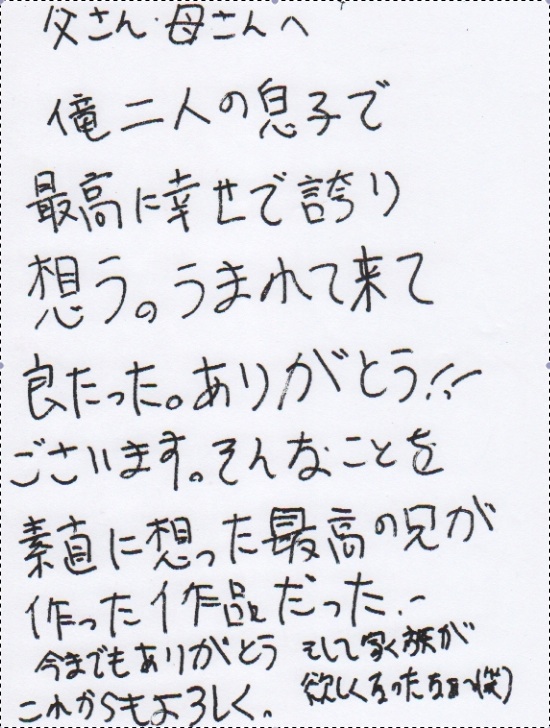 父さん・母さんへ
俺二人の息子で
最高に幸せで誇り
想う。うまれて来て
良たった。ありがとう!!
ございます。そんなことを
素直に想った最高の兄が
作った作品だった!!
今までもありがとう
これからもよろしく。
そして家く族が
欲しくなったなぁ〜(笑)